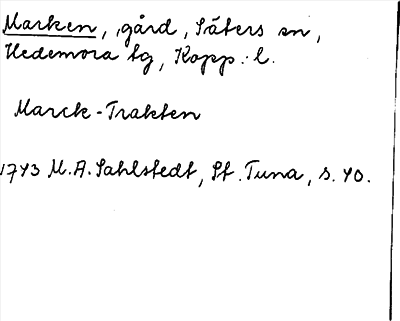 Marken, gård, Säters sn,
Hedemora tg, Kopp. l.
Marck-Trakten
1743 M.A. Sahlstedt, St. Tuna, s. 40.